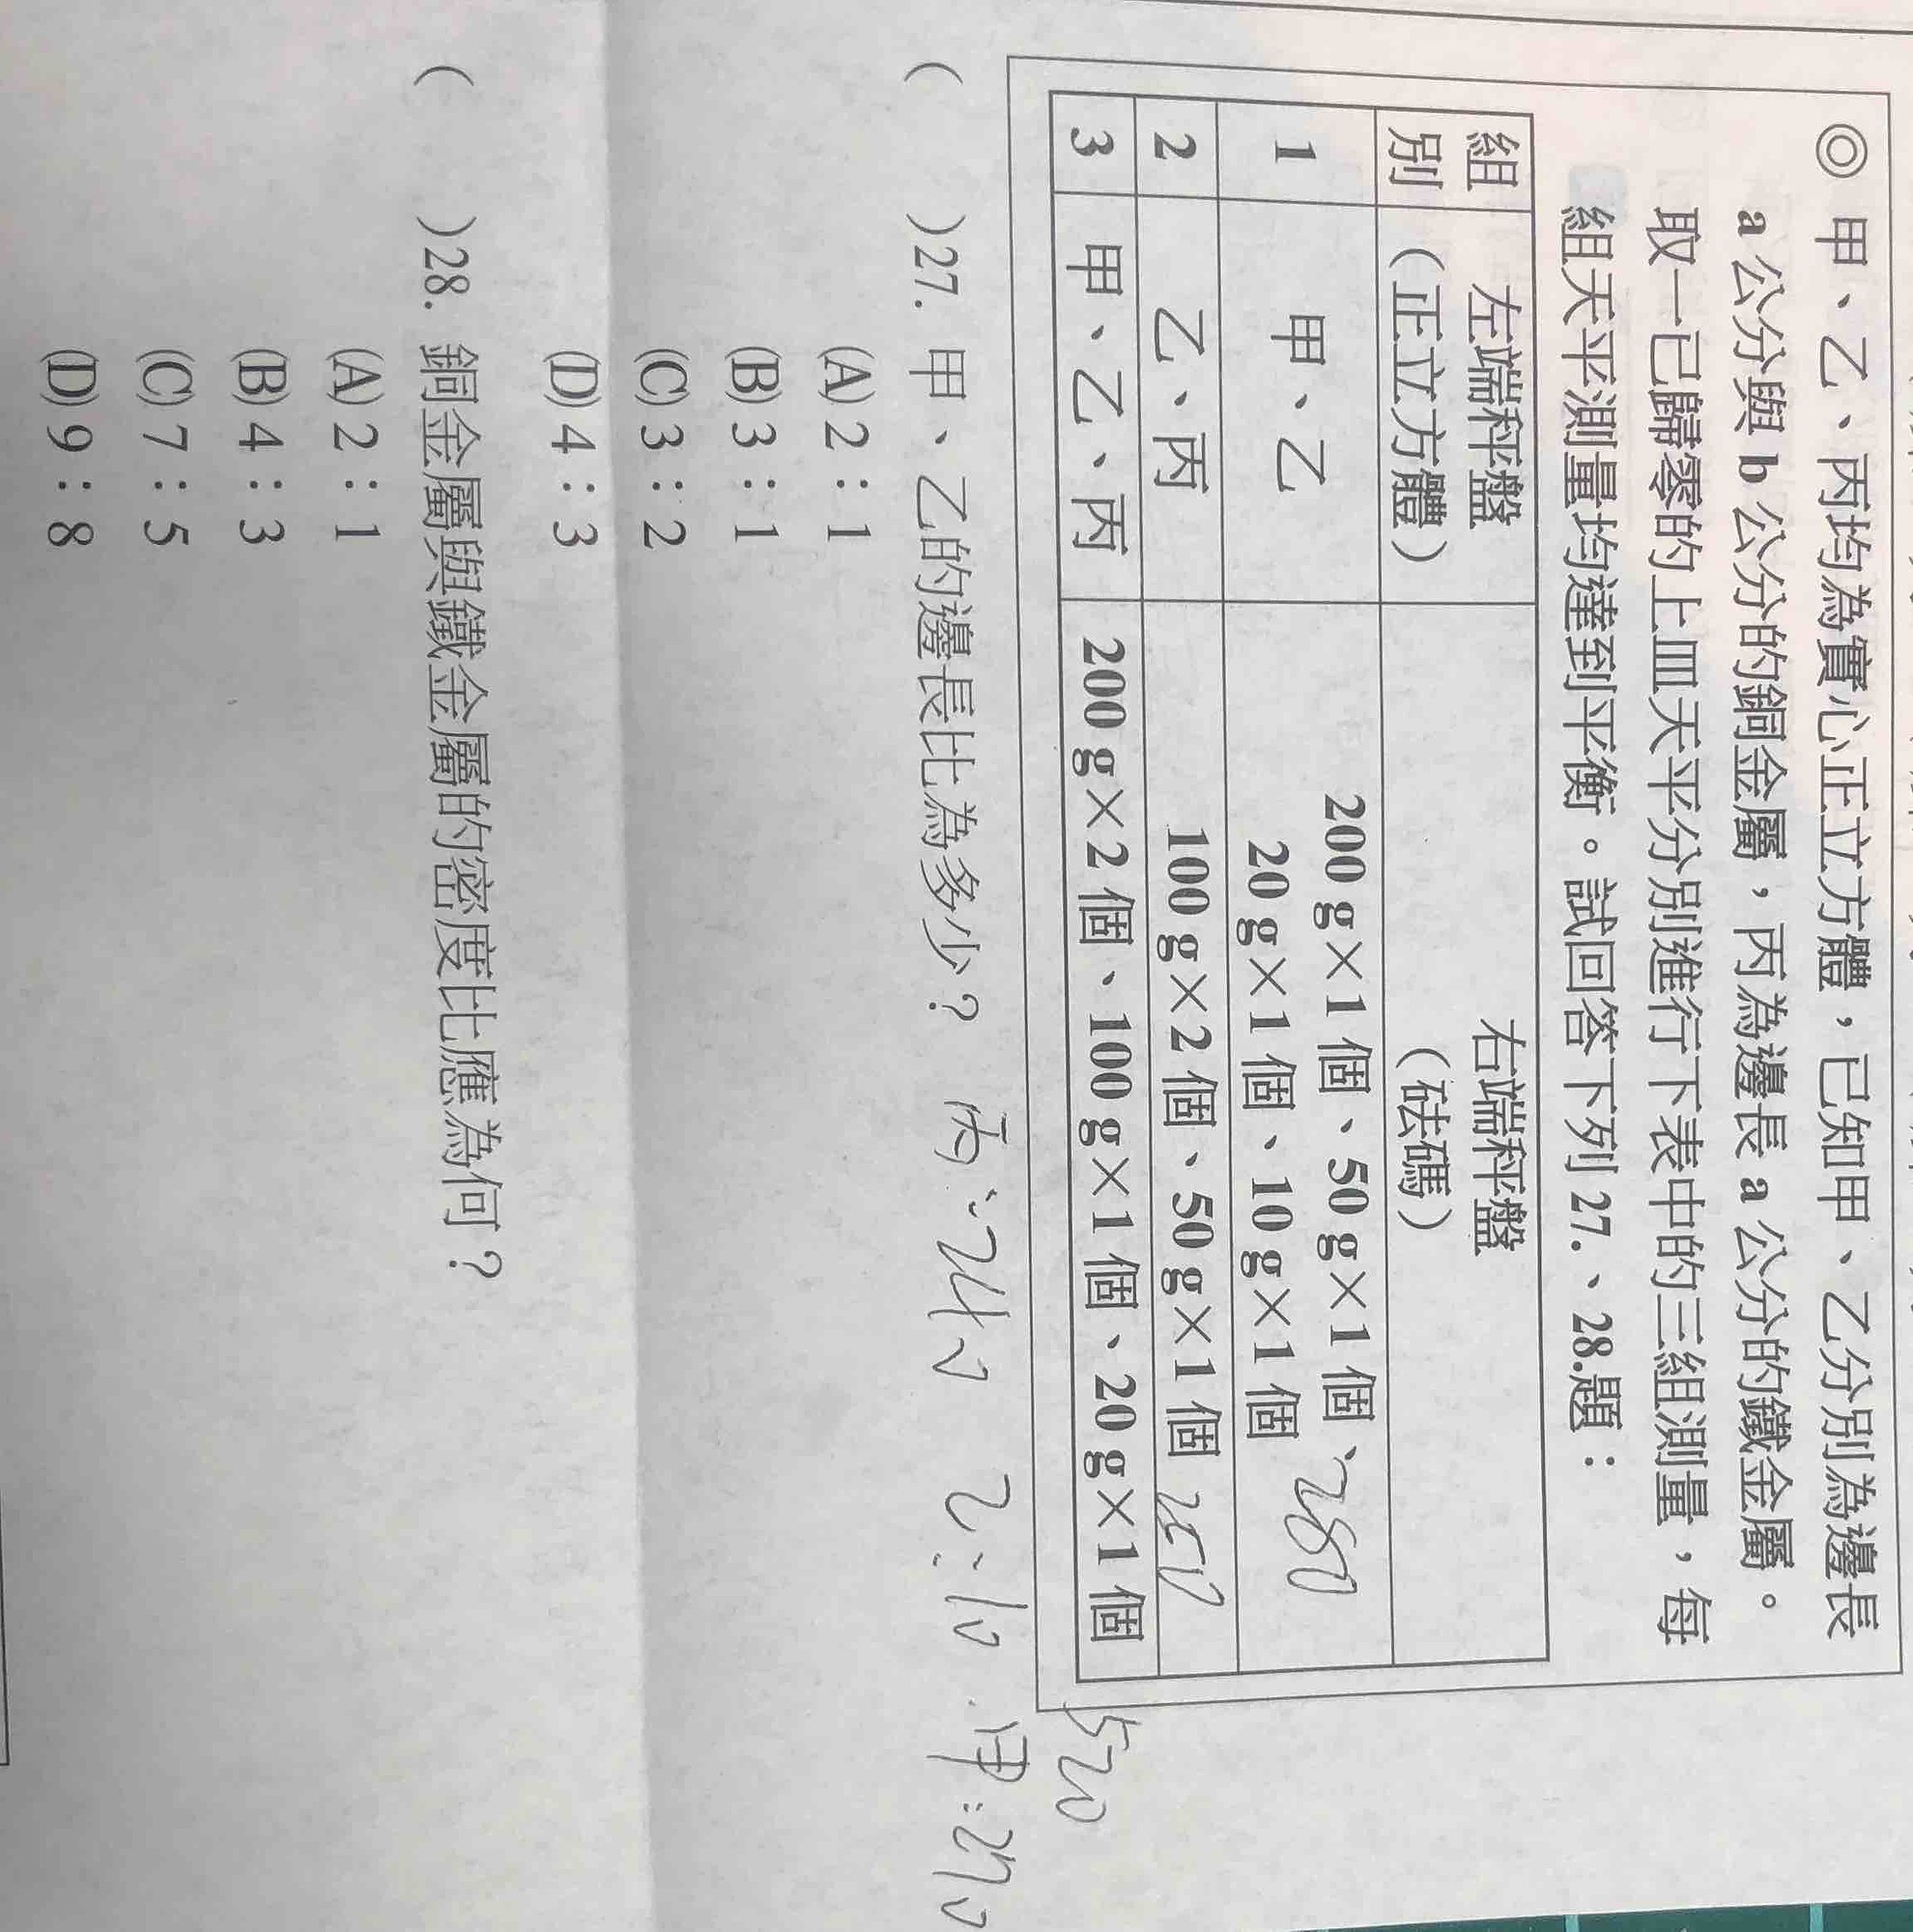 ◎ 甲、乙、丙均為實心正立方體，已知甲、乙分別為邊長
a 公分與 b 公分的銅金屬，丙為邊長 a 公分的鐵金屬。
取一已歸零的上皿天平分別進行下表中的三組測量，每
組天平測量均達到平衡。試回答下列 27.、28.題：
組別 左端秤盤（正立方體） 右端秤盤（砝碼）
1 甲、乙 200 g×1 個、50 g×1 個、
20 g×1 個、10 g×1 個 280
2 乙、丙 100 g×2 個、50 g×1 個 250
3 甲、乙、丙 200 g×2 個、100 g×1 個、20 g×1 個
520
( )27. 甲、乙的邊長比為多少？ 丙:240 乙:10 甲:270
(A) 2：1
(B) 3：1
(C) 3：2
(D) 4：3
( )28. 銅金屬與鐵金屬的密度比應為何？
(A) 2：1
(B) 4：3
(C) 7：5
(D) 9：8